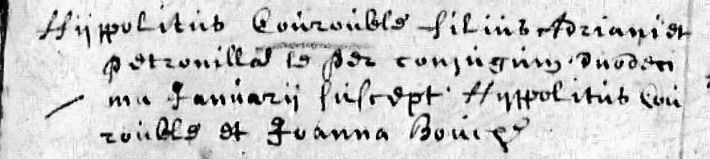 Hÿppolitus Courouble filius Adriani et
Petronillae le per conjugum duodeci
ma Januarÿ suscept. Hÿppolitus Cou
rouble et Joanna